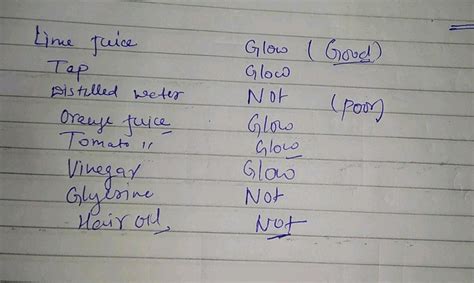 Lime juice Glow (Good)
Tap Glow
Distilled water Not (poor)
Orange juice Glow
Tomato " Glow
Vinegar Glow
Glycerine Not
Hair oil Not